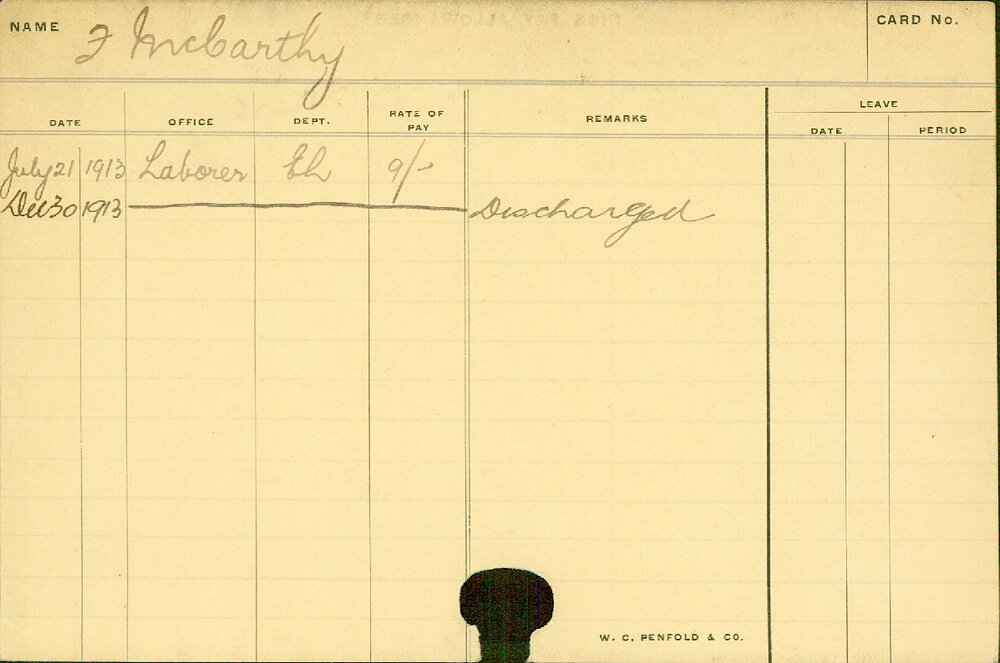 NAME F McCarthy CARD No.
LEAVE
DATE OFFICE DEPT. RATE OF PAY REMARKS DATE PERIOD
July 21 1913 Laborer El 9/-
Dec 30 1913 Discharged
W. C. PENFOLD & CO.